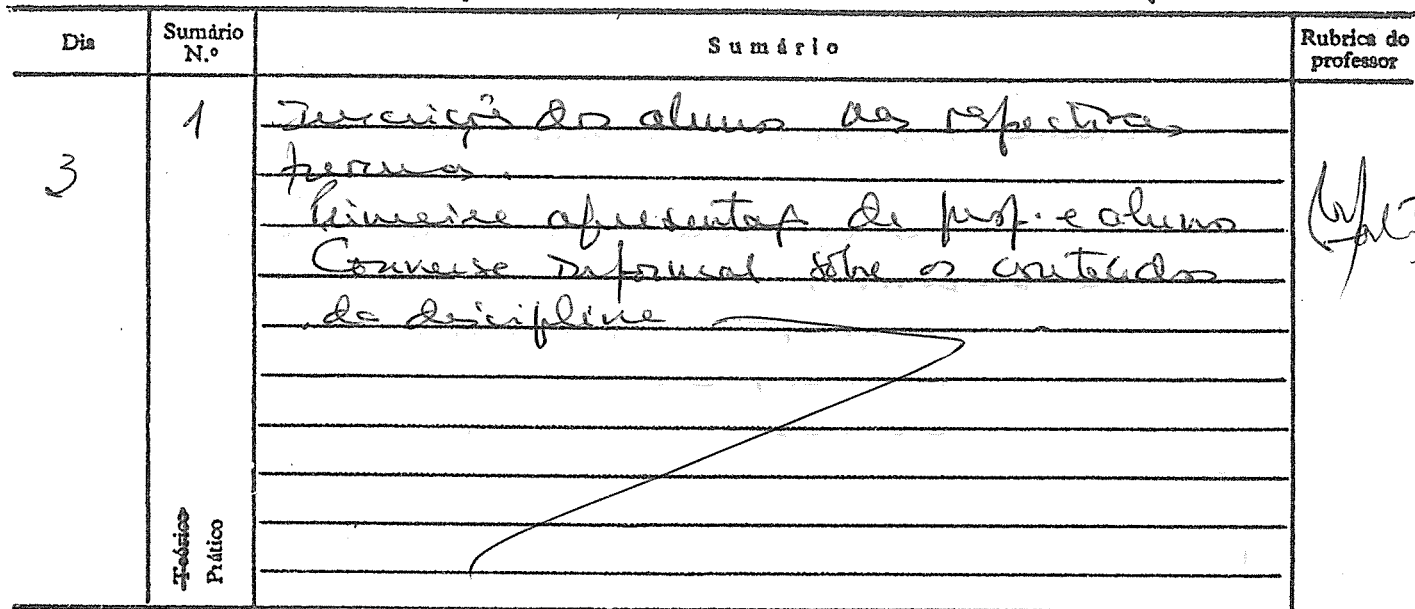 Dia Sumário N.º Sumário Rubrica do professor
3 1 Inscrição dos alunos nas respectivas
turmas.
Primeira apresentaç de prof. e alunos
Conversa informal sobre os conteúdos
da disciplina
Teórico
Prático